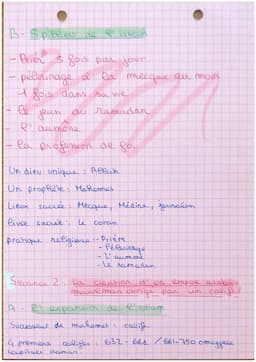 B - 5 piliers de l'islam
- Prier 5 fois par jour
- pèlerinage à la mecque au moin
1 fois dans sa vie
- le jeun du ramadan
- l'aumône
- la profession de foi
Un dieu unique : Allah
Un prophète : Mahomet
Lieux sacrée : Mecque, Médine, Jerusalem
livre sacrée : le coran
pratique religieuse : - Prière
- Pélerinage
- L'aumone
- le ramadan
Séance 2 : La création d'un empire arabo-
musulman dirigé par un calife
A - l'expansion de l'islam
Successeur de mahomet : calife
4 premiers califes : 632 - 661 / 661-750 omeyyade